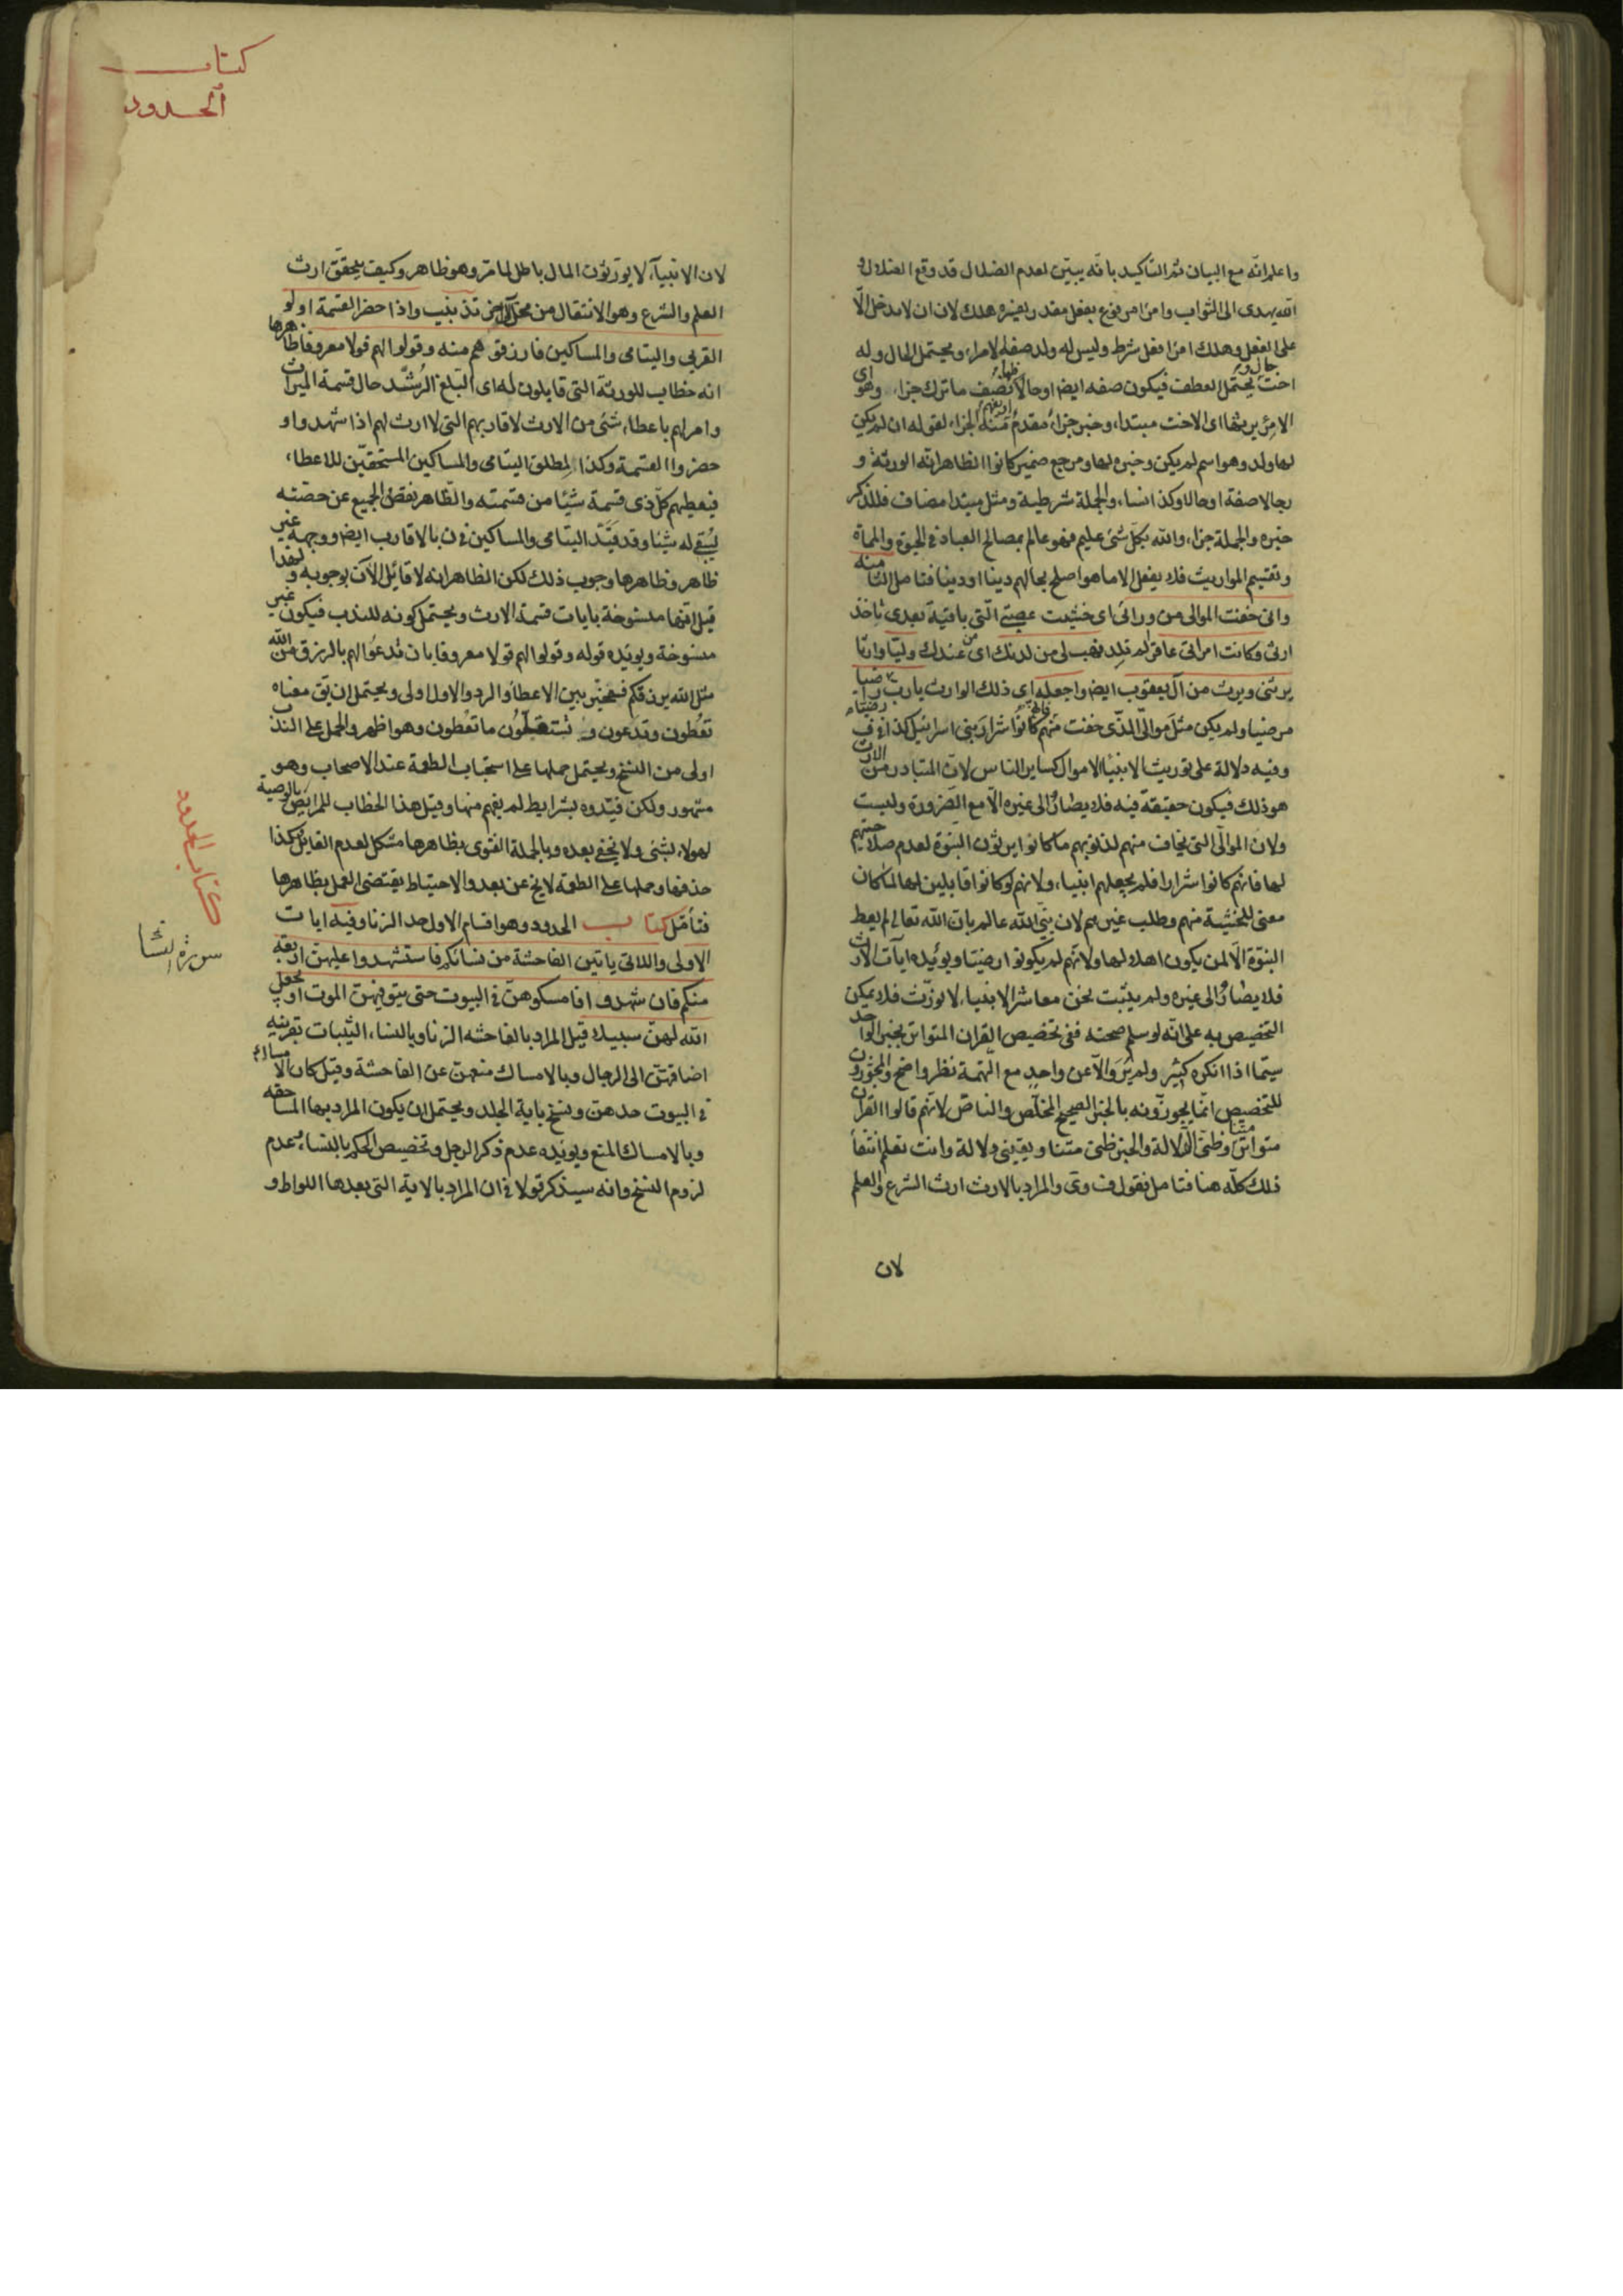 واعلم انّه مع البيان ثم التاكيد بانّه يبيّن لعدم الضلال قد وقع الضلال و
الله يهدى الى الثواب وامرؤ مرفوع بفعل مقدر يفسره هلك لان ان لا يدخل الّا
على الفعل وهلك امرؤ فعل شرط وليس له ولد صفة لامرء ويحتمل الحال وله
اخت يحتمل العطف فيكون صفه ايضا او حالا فلها نصف ما ترك جزاء وهو اى
الامرؤ يرثها اى الاخت مبتداء وخبر جزاء مقدم الجزاء لقوله ان لم يكن
لها ولد وهو اسم لم يكن وخبره لها ومرجع ضمير كانوا الظاهر انّه الورثة و
رجالا صفة او حالا وكذا نساء والجملة شرطية ومثل مبتدا مضاف فللذكر
خبره والجملة جزاء والله بكل شئ عليم فهو عالم بمصالح العباد فى الحيوة والمماة
وتقسيم المواريث فلا يفعل الا ما هو اصلح بحالهم دينا او دينا فتامل الثامنة
وانى خفت الموالى من ورائى اى خشيت عصبتى الّتى باقية بعدى تأخذ
ارثى وكانت امراتى عاقرا لم تلد فهب لى من لدنك اى من عندك وليّا وارثا
يرثنى ويرث من آل يعقوب ايضا واجعله اى ذلك الوارث يا رب رضيا
مرضيا ولم يكن مثل موالىّ الذى خفت منهم فانهم كانوا شرار بنى اسرائيل كذا فى ف
وفيه دلالة على توريث الانبياء الاموال كساير الناس لانّ المتبادر من الارث
هو ذلك فيكون حقيقة فيه فلا يصار الى غيره الّا مع الضرورة وليست
ولان الموالى التى يخاف منهم لذنوبهم ما كانوا يرثون النبوة لعدم صلاحيتهم
لها فانهم كانوا شرارا فلم يجعلهم انبياء ولانهم لو كانوا قابلين لها لما كان
معنى للخشية منهم وطلب غيرهم لان نبىّ الله عالم بان الله تعالى لم يعط
النبوّة الّا لمن يكون اهلا لها ولانهم لم يكونوا رضيّا ويؤيده ايات الارث
فلا يصار الى غيره ولم يثبت نحن معاشر الانبياء لا نورّث فلا يمكن
التخصيص به على انّه لو سلم صحته ففى تخصيص القران المتواتر بخبر الواحد
سيّما اذا انكره كثير ولم يرو الّا عن واحد مع التهمة نظر واضح والمجوزون
للتخصيص انّما يجوّزونه بالخبر الصحيح المخلّص والناصّ لانّهم قالوا القران
متواتر متنا وظنى الدلالة والخبر ظنى متنا ويقينى دلالة وانت تعلم انتفاء
ذلك كلّه هنا فتامل فقول ف وق والمراد بالارث ارث الشرع والعلم
لان
كتاب
الحدود
لان الانبيآء لا يورّثون المال باطل لما مرّ وهو ظاهر وكيف يتحقق ارث
العلم والشرع وهو الانتقال من محلّ الى اخر تذنيب واذا حضر القسمة اولو
القربى واليتامى والمساكين فارزقوهم منه وقولوا لهم قولا معروفا ظاهرها
انه خطاب للورثة التى قابلون له اى البلّغ الرُشَّد حال قسمة الميراث
وامر لهم باعطاء شئ من الارث لاقاربهم التى لا ارث لهم اذا شهدوا و
حضروا القسمة وكذا لمطلق اليتامى والمساكين المستحقّين للاعطاء
فيعطيهم كلّ ذى قسمة شيئا من قسمته والظاهر نقض الجميع عن حصّته
يبقى له شيئا وقد قيّد اليتامى والمساكين فى ن بالاقارب ايضا ووجهه غير
ظاهر وظاهرها وجوب ذلك لكن الظاهر انه لا قائل الآن بوجوبه ولهذا
قيل انّها منسوخة بايات قسمة الارث ويحتمل كونه للندب فيكون غير
منسوخة ويؤيّده قوله وقولوا لهم قولا معروفا بان تدعوا لهم بالرزق من الله
مثل الله يرزقكم فيخيّر بين الاعطاء والرد والاول اولى ويحتمل ان يق معناه
تعطون وتدعون و تستقلّون ما تعطون وهو اظهر والحمل على الندب
اولى من النسخ ويحتمل حملها على استحباب الطعمة عند الاصحاب وهو
مشهور ولكن قيّدوه بشرايط لم يفهم منها وقيل هذا الخطاب للمرايض بالوصية
لهولاء بشئ ولا يخفى بعده وبالجملة الفتوى بظاهرها مشكل لعدم القايل وكذا
حذفها وحملها على الطعمة لا يخ عن بعد والاحتياط يقتضى العمل بظاهرها
فتأمّل كتاب الحدود وهو اقسام الاول حد الزنا وفيه ايات
الاولى واللاتى ياتين الفاحشة من نسائكم فاستشهدوا عليهن اربعة
منكم فان شهدوا فامسكوهنّ فى البيوت حتى يتوفيهنّ الموت او يجعل
الله لهنّ سبيلا قيل المراد بالفاحشه الزنا وبالنساء الثيبات بقرينه
اضافتهنّ الى الرجال وبالامساك منعهنّ عن الفاحشة وقيل كان الامساك
فى البيوت حدهنّ ونسخ باية الجلد ويحتمل ان يكون المراد بها المساحقه
وبالامساك المنع ويؤيده عدم ذكر الرجل وتخصيص الحكم بالنساء وعدم
لزوم النسخ وانه سيذكر قولا فى ان المراد بالاية التى بعدها اللواط و
كتاب الحدود
سورة النسا